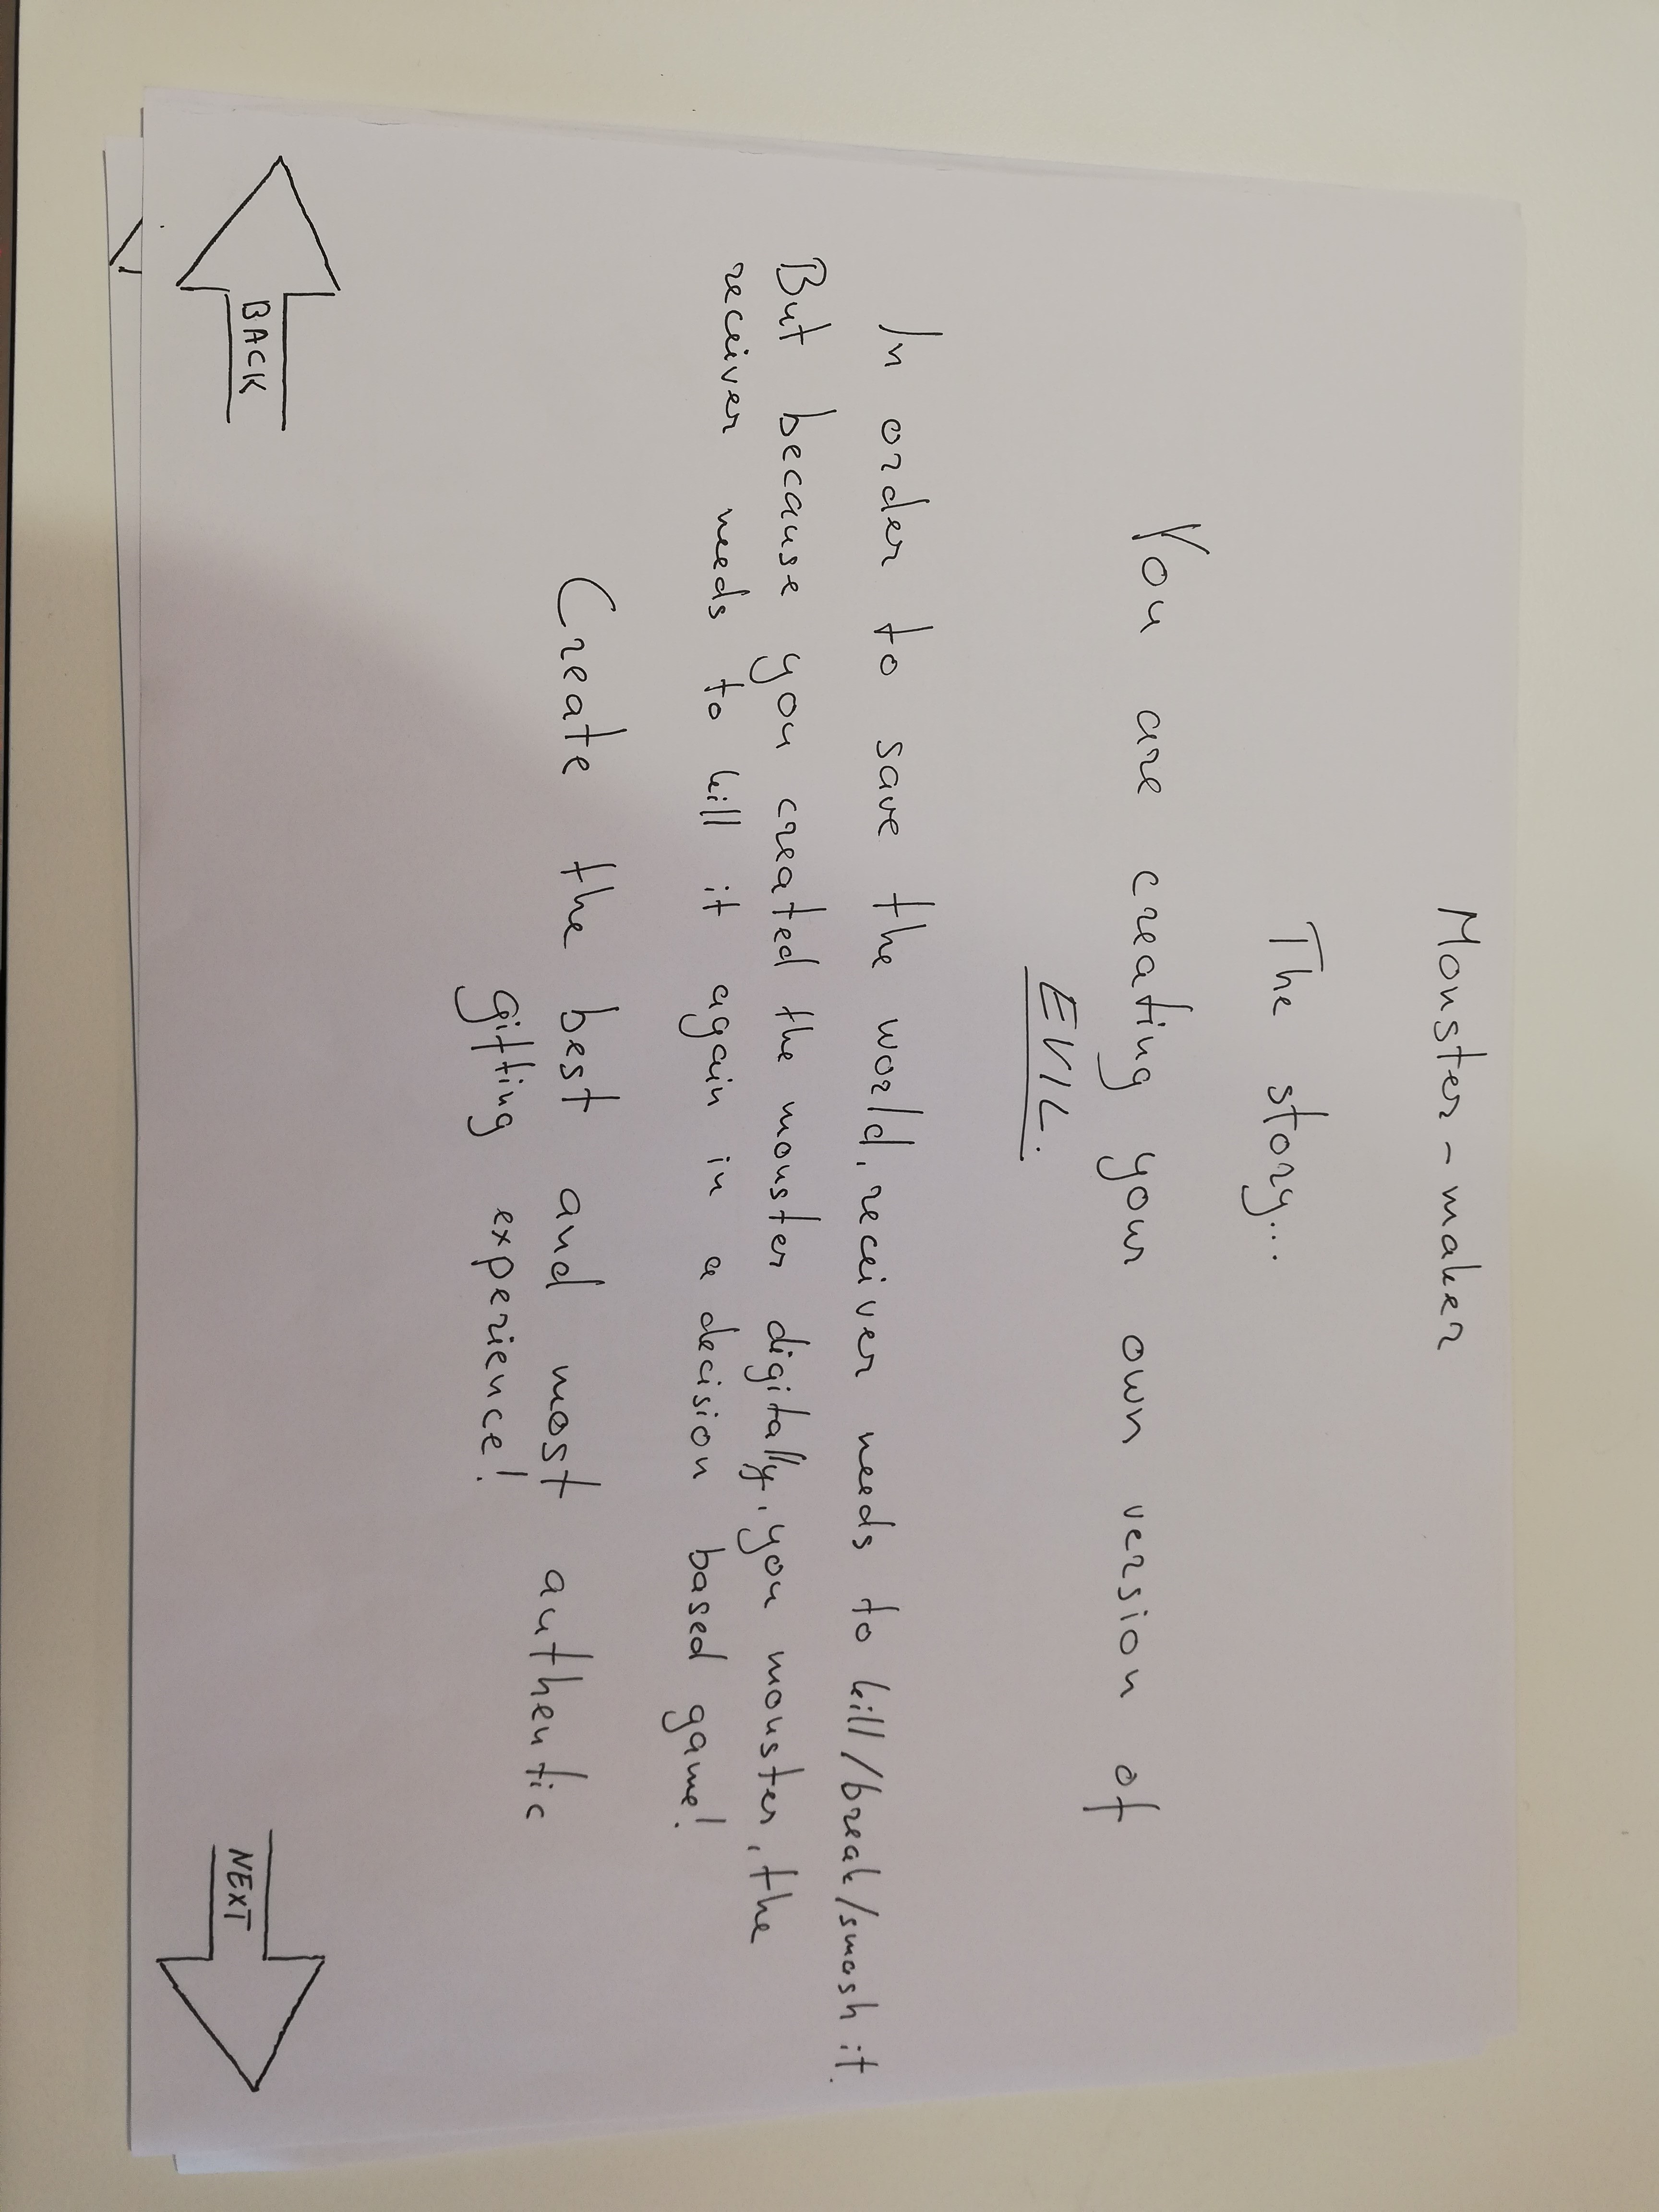 Monster - maker
The story...
You are creating your own version of
EVIL.
In order to save the world, receiver needs to kill/break/smash it.
But because you created the monster digitally, you monster, the
receiver needs to kill it again in a decision based game!
Create the best and most authentic
gifting experience!
BACK
NEXT